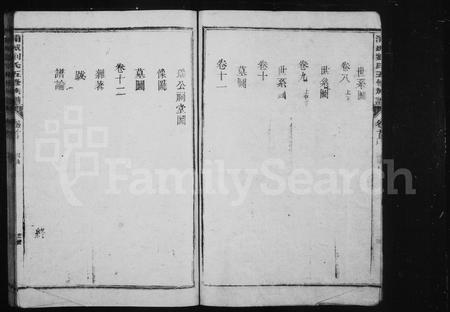 世系圖
卷八 上下
世系圖
卷九 上下
世系圖
卷十
墓圖
卷十一
公祠堂圖
像圖
墓圖
卷十二
雜著
跋
譜論
終
FamilySearch